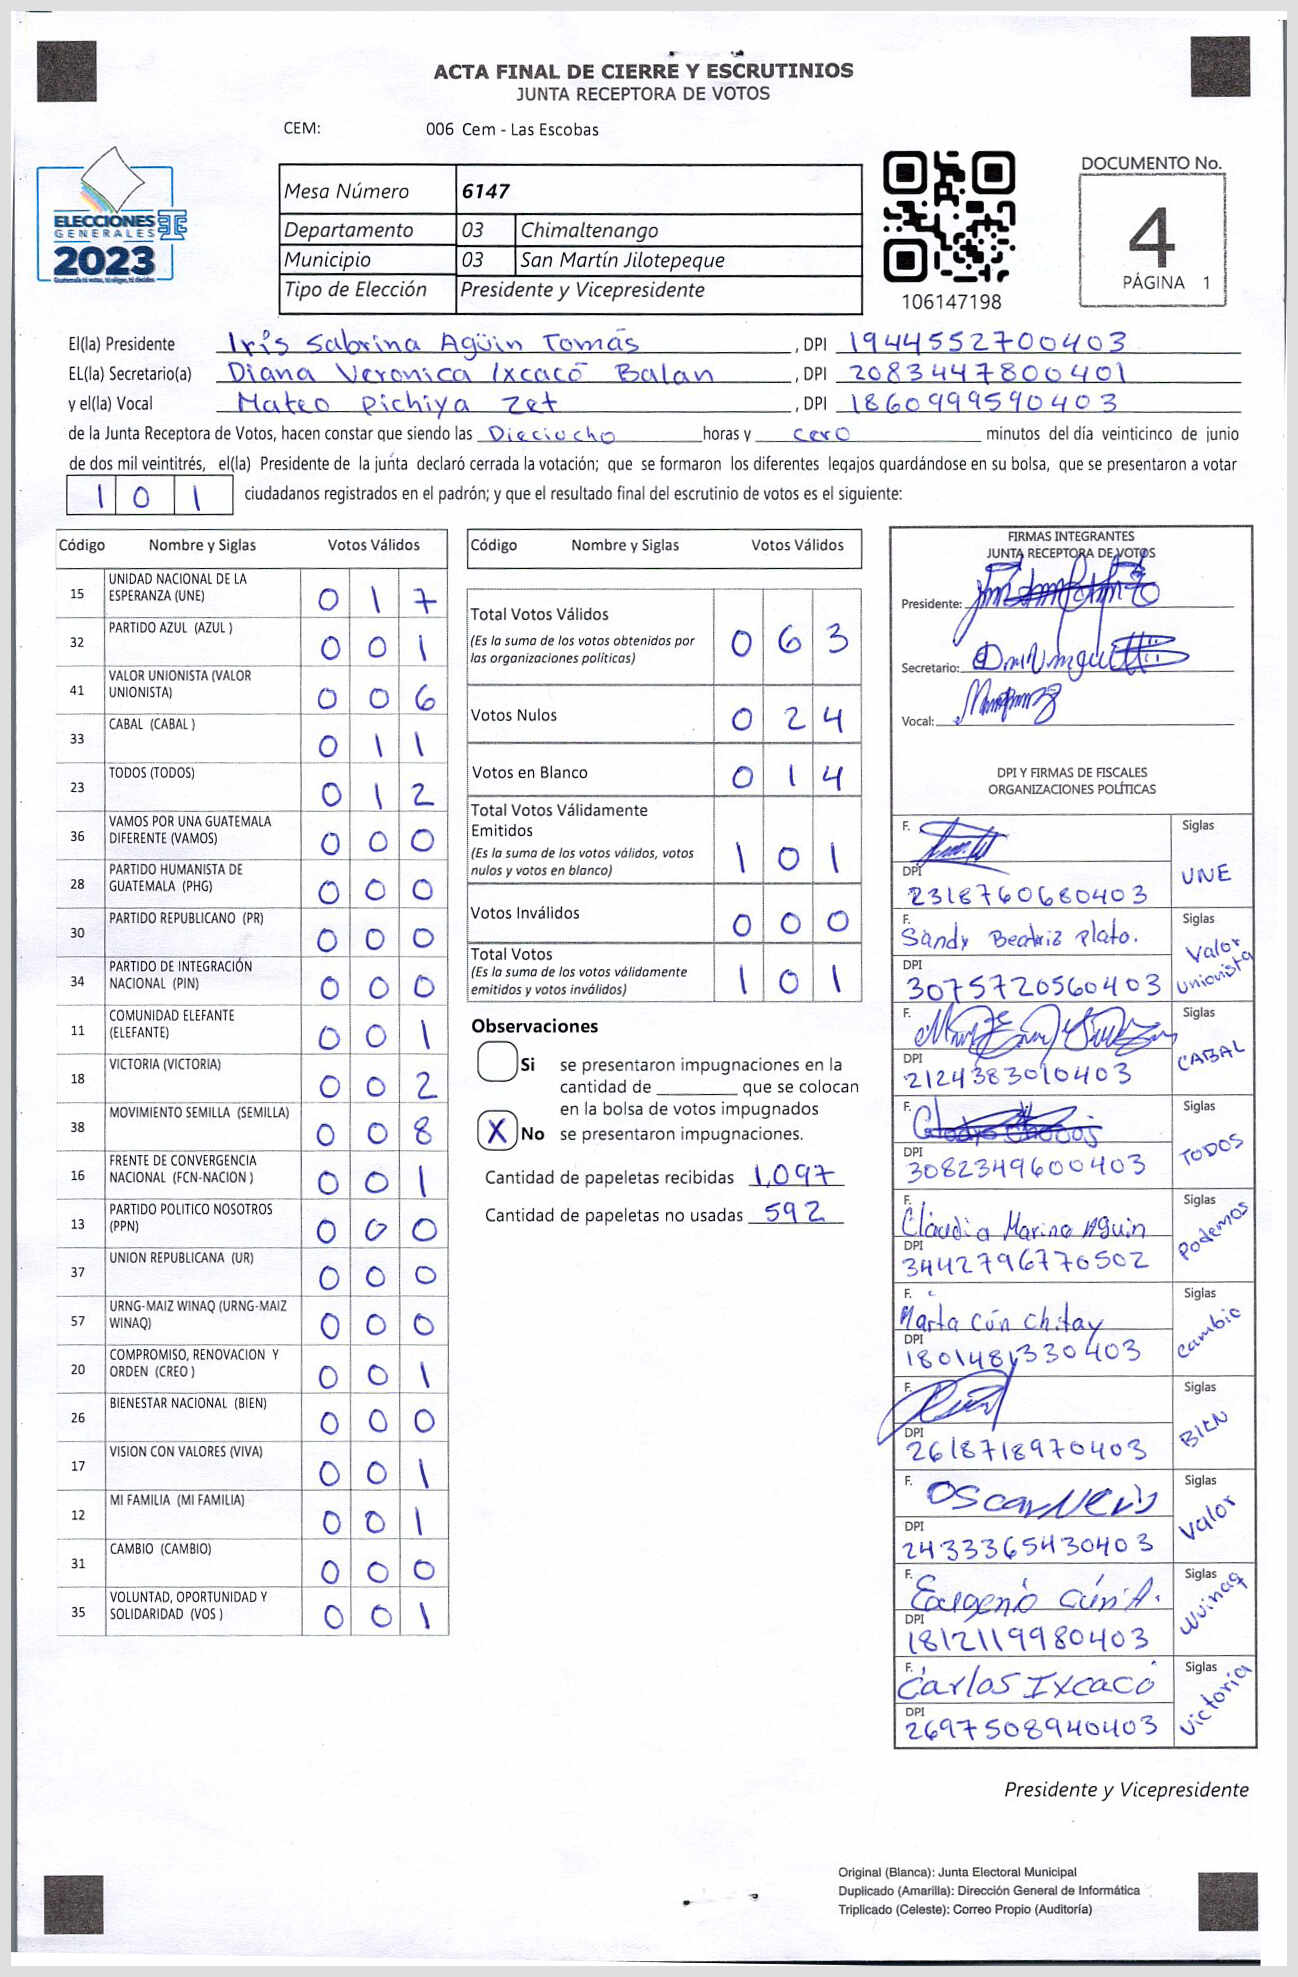 ACTA FINAL DE CIERRE Y ESCRUTINIOS
JUNTA RECEPTORA DE VOTOS
CEM: 006 Cem - Las Escobas
ELECCIONES
GENERALES
2023
Mesa Número 6147
Departamento 03 Chimaltenango
Municipio 03 San Martín Jilotepeque
Tipo de Elección Presidente y Vicepresidente
106147198
DOCUMENTO No.
4
PÁGINA 1
El(la) Presidente Iris Sabrina Agüin Tomás , DPI 1944552700403
EL(la) Secretario(a) Diana Veronica Ixcacó Balan , DPI 2083447800401
y el(la) Vocal Mateo Pichiya Zet , DPI 1860999590403
de la Junta Receptora de Votos, hacen constar que siendo las Dieciocho horas y cero minutos del día veinticinco de junio
de dos mil veintitrés, el(la) Presidente de la junta declaró cerrada la votación; que se formaron los diferentes legajos guardándose en su bolsa, que se presentaron a votar
101 ciudadanos registrados en el padrón; y que el resultado final del escrutinio de votos es el siguiente:
Código Nombre y Siglas Votos Válidos
15 UNIDAD NACIONAL DE LA ESPERANZA (UNE) 0 1 7
32 PARTIDO AZUL (AZUL ) 0 0 1
41 VALOR UNIONISTA (VALOR UNIONISTA) 0 0 6
33 CABAL (CABAL ) 0 1 1
23 TODOS (TODOS) 0 1 2
36 VAMOS POR UNA GUATEMALA DIFERENTE (VAMOS) 0 0 0
28 PARTIDO HUMANISTA DE GUATEMALA (PHG) 0 0 0
30 PARTIDO REPUBLICANO (PR) 0 0 0
34 PARTIDO DE INTEGRACIÓN NACIONAL (PIN) 0 0 0
11 COMUNIDAD ELEFANTE (ELEFANTE) 0 0 1
18 VICTORIA (VICTORIA) 0 0 2
38 MOVIMIENTO SEMILLA (SEMILLA) 0 0 8
16 FRENTE DE CONVERGENCIA NACIONAL (FCN-NACION ) 0 0 1
13 PARTIDO POLITICO NOSOTROS (PPN) 0 0 0
37 UNION REPUBLICANA (UR) 0 0 0
57 URNG-MAIZ WINAQ (URNG-MAIZ WINAQ) 0 0 0
20 COMPROMISO, RENOVACION Y ORDEN (CREO ) 0 0 1
26 BIENESTAR NACIONAL (BIEN) 0 0 0
17 VISION CON VALORES (VIVA) 0 0 1
12 MI FAMILIA (MI FAMILIA) 0 0 1
31 CAMBIO (CAMBIO) 0 0 0
35 VOLUNTAD, OPORTUNIDAD Y SOLIDARIDAD (VOS ) 0 0 1
Código Nombre y Siglas Votos Válidos
Total Votos Válidos 0 6 3
(Es la suma de los votos obtenidos por
las organizaciones políticas)
Votos Nulos 0 2 4
Votos en Blanco 0 1 4
Total Votos Válidamente
Emitidos 1 0 1
(Es la suma de los votos válidos, votos
nulos y votos en blanco)
Votos Inválidos 0 0 0
Total Votos 1 0 1
(Es la suma de los votos válidamente
emitidos y votos inválidos)
Observaciones
Si se presentaron impugnaciones en la
cantidad de ________ que se colocan
en la bolsa de votos impugnados
X No se presentaron impugnaciones.
Cantidad de papeletas recibidas 1,097
Cantidad de papeletas no usadas 592
FIRMAS INTEGRANTES
JUNTA RECEPTORA DE VOTOS
Presidente:
Secretario:
Vocal:
DPI Y FIRMAS DE FISCALES
ORGANIZACIONES POLÍTICAS
F. Siglas UNE
DPI 2318760680403
F. Sandy Beatriz Plato. Siglas Valor Unionista
DPI 3075720560403
F. Siglas CABAL
DPI 2124383010403
F. Siglas TODOS
DPI 3082349600403
F. Claudia Marina Aguin Siglas Podemos
DPI 3442796770502
F. Marta Cún Chitay Siglas Cambio
DPI 1801481330403
F. Siglas BIEN
DPI 2618718970403
F. Oscar Siglas Valor
DPI 2433365430403
F. Eugenio Cún A. Siglas Wuinaq
DPI 1812119980403
F. Carlos Ixcacó Siglas Victoria
DPI 2697508940403
Presidente y Vicepresidente
Original (Blanca): Junta Electoral Municipal
Duplicado (Amarilla): Dirección General de Informática
Triplicado (Celeste): Correo Propio (Auditoría)